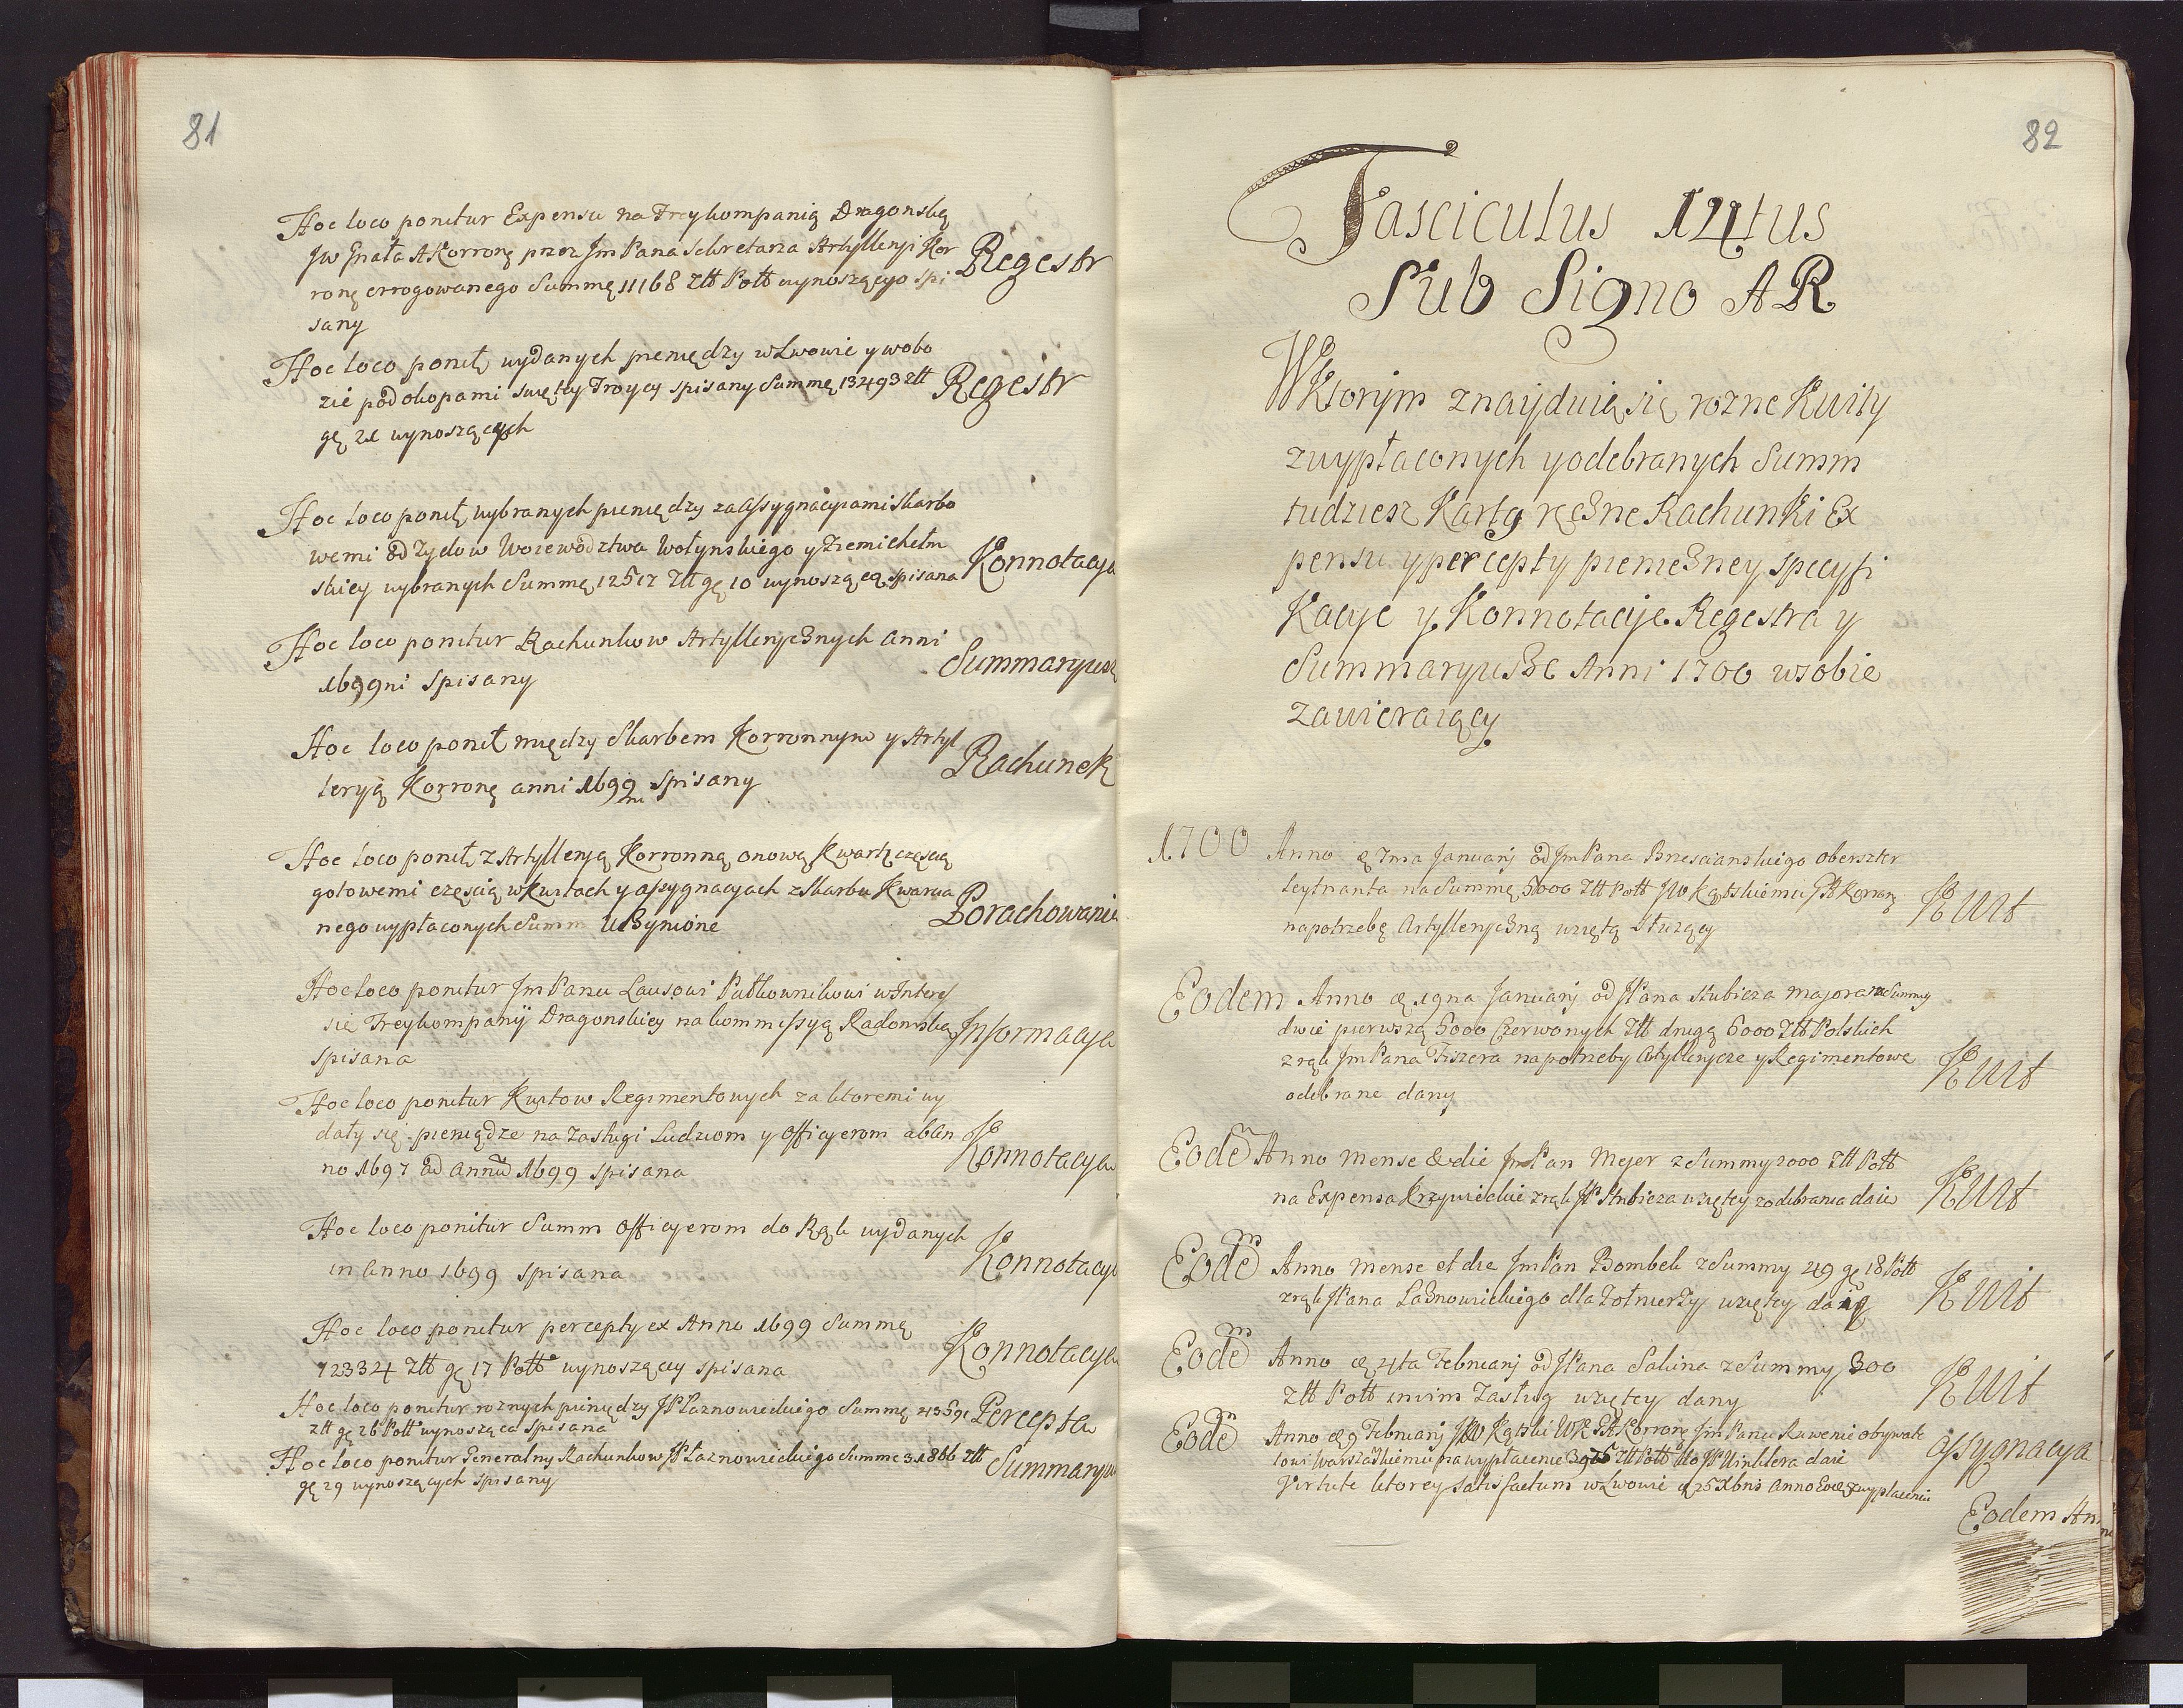 81
Hoc loco ponitur Expensu na Freykompanią Dragonską
Jw Grała A Korronę przez Jm Pana Sekretarza Artylleryi Kor
ronę errogowanego Summę 11168 Ztt Pott wynoszącyo spi
sany
Regestr
Hoc loco ponitr wydanych pieniędzy w Lwowie y wobo
zie pod okopami swiętey Troycy spisany Summę 13493 ztt
gę 21 wynoszących
Regestr
Hoc loco ponitr wybranych pieniędzy za Assygnacyiami Skarbo
wemi od Zydow Woiewodztwa Wołynskiego y Ziemi Chełm
skiey wybranych Summę 12517 Ztt gę 10 wynoszącą spisana
Konnotacya
Hoc loco ponitur Rachunkow Artyllerycznych Anni
1699ni spisany
Summaryusz
Hoc loco ponit między Skarbem Korronnym y Artyl
leryą Korronę anni 1699ni spisany
Rachunek
Hoc loco ponitr z Artylleryą Korronną onową Kwartę częscią
gotowemi częscią w Kwitach y assygnacyach z Skarbu Kwarcia
nego wypłaconych Summ uczynione
Porachowanie
Hoc loco ponitur Jm Panu Lausowi Pułkownikowi w Interes
sie Freykompanÿ Dragonskiey na kommissyą Radomską
spisana
Informacya
Hoc loco ponitur Kwitow Regimentowych za ktoremi wy
dały się pieniądze na Zasługi Ludziom y Officyerom ab An
no 1697 ad annũ 1699 spisana
Konnotacya
Hoc loco ponitur Summ Officyerom do Rąk wydanych
in Anno 1699 spisana
Konnotacya
Hoc loco ponitur percepty ex Anno 1699 Summę
123334 Ztt gę 17 Pott wynoszący spisana
Konnotacya
Hoc loco ponitur roznych pieniędzy JP Łaznowieckiego Summę
ztt gę 26 Pott wynosząca spisana
Percepta
Hoc loco ponitur Generalny Rachunkow JP Łaznowieckiego Summe 31866 ztt
gę 29 wynoszących spisany
Summaryu
82
Fasciculus 14tus
Sub Signo AR
W Ktorym znayduią się rozne Kwity
z wypłaconych y odebranych Summ
tudziesz Karty ręczne Rachunki Ex
pensu y percepty pieniezney specyfi
Kacye y Konnotacye Regestra y
Summaryusze Anni 1700 w sobie
zawieraiący
1700 Anno d 7ma Januarÿ od Jm Pana Brzescianskiego oberszter
leytnanta na Summę 5000 Ztt Pott JW Kątskiemu GA Korronę
na potrzebę Artylleryczną wziętą służący
Kwit
Eodem Anno d 19na Januarÿ od JPana Stubicza majora na Summy
dwie pierwszą 5000 Czerwonych Ztt drugą 6000 Ztt Polskich
z rąk Jm Pana Fiszera na potrzeby Artylleryczne y Regimentowe
odebrane dany
Kwit
Eodem Anno Mense & die Jm Pan Mejer z Summy 2000 Ztt Pott
na Expensa Krzywieckie z rąk JP Stubicza wziętey z odebrania daie
Kwit
Eodem Anno Mense et die Jm Pan Bombek z Summy 49 gę 18 Pott
z rąk JPana Łaznowickiego dla Zołnierzy wziętey daią
Kwit
Eodem Anno d 4ta Februarÿ od JPana Salina z Summy 300
Ztt Pott Zasług wziętey dany
Kwit
Eodem Anno d 9 Februarÿ JW Kątski WK GA Korronę Jm Panu Ruwenie obywate
lowi Warszawskiemu na wypłacenie Ztt Pott do JP Winklera daie
Virtute ktorey satisfactum w Lwowie d 25 Xbris Anno wypłacenie
assygnacya
Eodem Anno